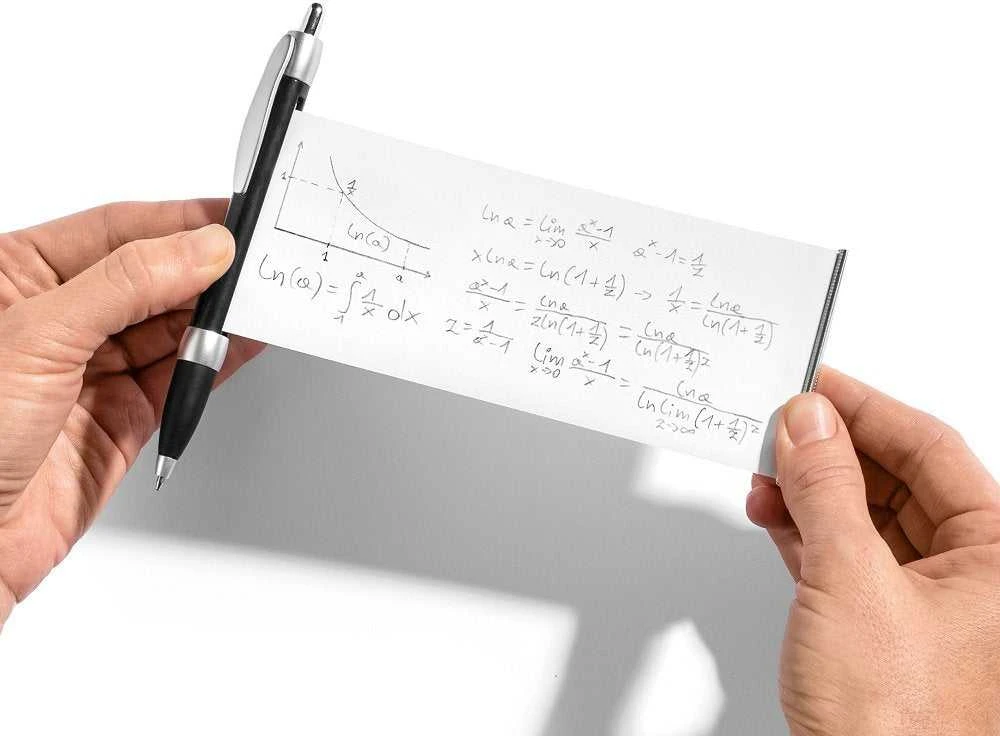 1
1/x
ln(a)
1 a
ln(a) = ∫₁ᵃ 1/x dx
ln a = lim x→0 (aˣ-1)/x aˣ-1 = 1/z
x ln a = ln(1+1/z) → 1/x = ln a/ln(1+1/z)
(aˣ-1)/x = ln a/(z ln(1+1/z)) = ln a/ln(1+1/z)ᶻ
z = 1/(aˣ-1)
lim x→0 (aˣ-1)/x = ln a/(ln lim z→∞ (1+1/z)ᶻ)